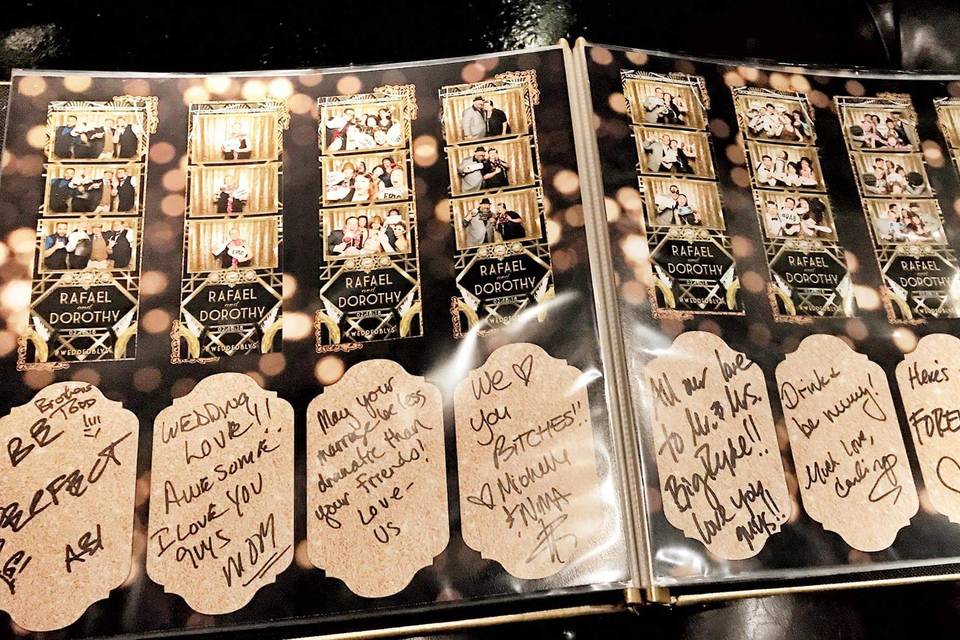 RAFAEL
and
DOROTHY
#WEDDEDBLYS
RAFAEL
and
DOROTHY
#WEDDEDBLYS
RAFAEL
and
DOROTHY
#WEDDEDBLYS
RAFAEL
and
DOROTHY
#WEDDEDBLYS
RAFAEL
and
DOROTHY
#WEDDEDBLYS
RAFAEL
and
DOROTHY
RAFAEL
and
DOROTHY
BE
PERFECT
WEDDING
LOVE!!
AWESOME
I LOVE YOU
GUYS
MOM
May your
marriage be less
dramatic than
your friends!
Love-
US
We ♡
You
BITCHES!!
♡ Michelle
All our love
to Mr. & Mrs.
love you
guys!!
Drink &
be merry!
Much love,
Here's
FORE